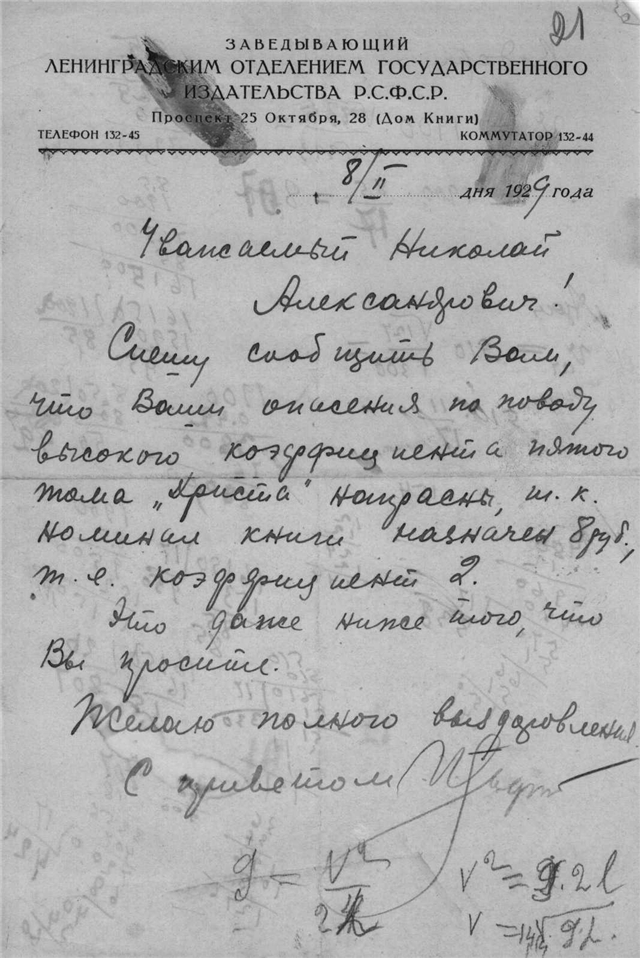 21
ЗАВЕДЫВАЮЩИЙ
ЛЕНИНГРАДСКИМ ОТДЕЛЕНИЕМ ГОСУДАРСТВЕННОГО
ИЗДАТЕЛЬСТВА Р.С.Ф.С.Р.
Проспект 25 Октября, 28 (Дом Книги)
ТЕЛЕФОН 132-45 КОММУТАТОР 132-44
8/II дня 1929 года
Уважаемый Николай
Александрович!
Спешу сообщить Вам,
что Ваши опасения по поводу
высокого коэффициента пятого
тома „Христа" напрасны, т. к.
номинал книги назначен 8 руб.,
т. е. коэффициент 2.
Это даже ниже того, что
Вы просите.
Желаю полного выздоровления.
С приветом
g = V²
V² = g.2l
V =